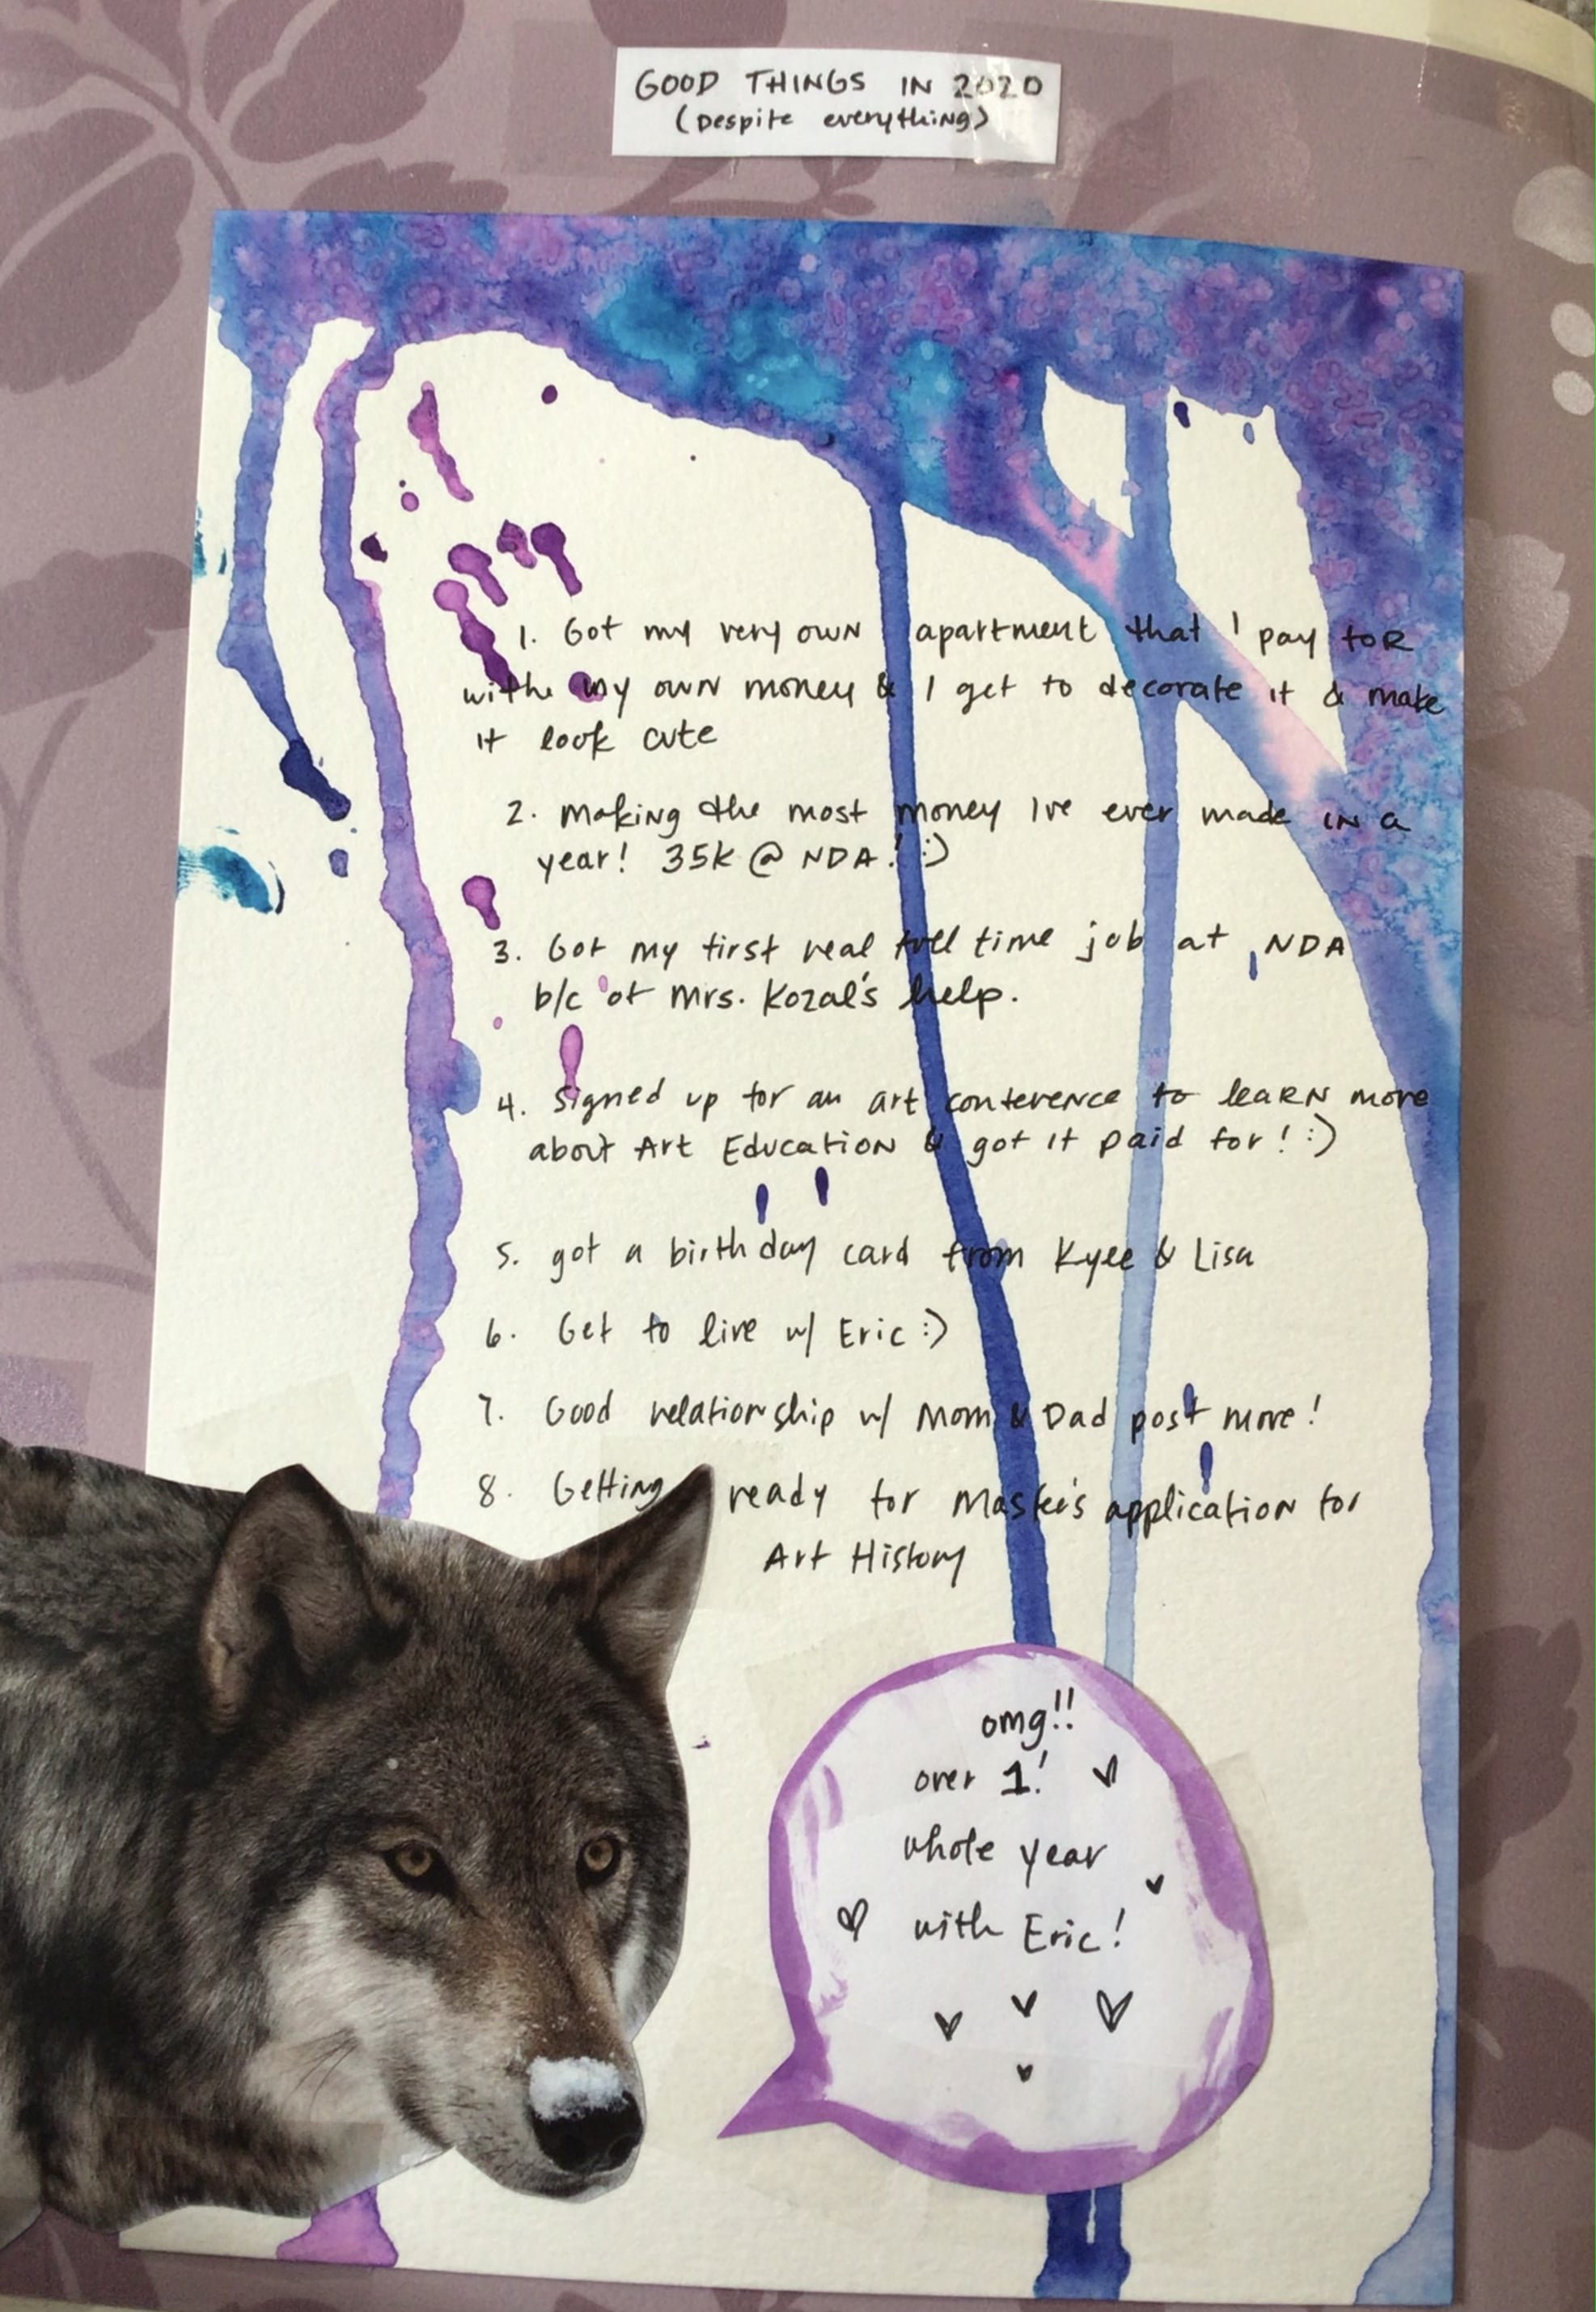 GOOD THINGS IN 2020
(Despite everything)
1. Got my very own apartment that I pay for
withe my own money & I get to decorate it & make
it look cute
2. Making the most money I've ever made in a
year! 35K @ NDA! :)
3. Got my first real full time job at NDA
b/c of Mrs. Kozal's help.
4. Signed up for an art conference to learn more
about Art Education & got it paid for! :)
5. got a birthday card from Kyle & Lisa
6. Get to live w/ Eric :)
7. Good relationship w/ Mom & Dad post move!
8. Getting ready for Master's application for
Art History
omg!!
over 1!
whole year
with Eric!